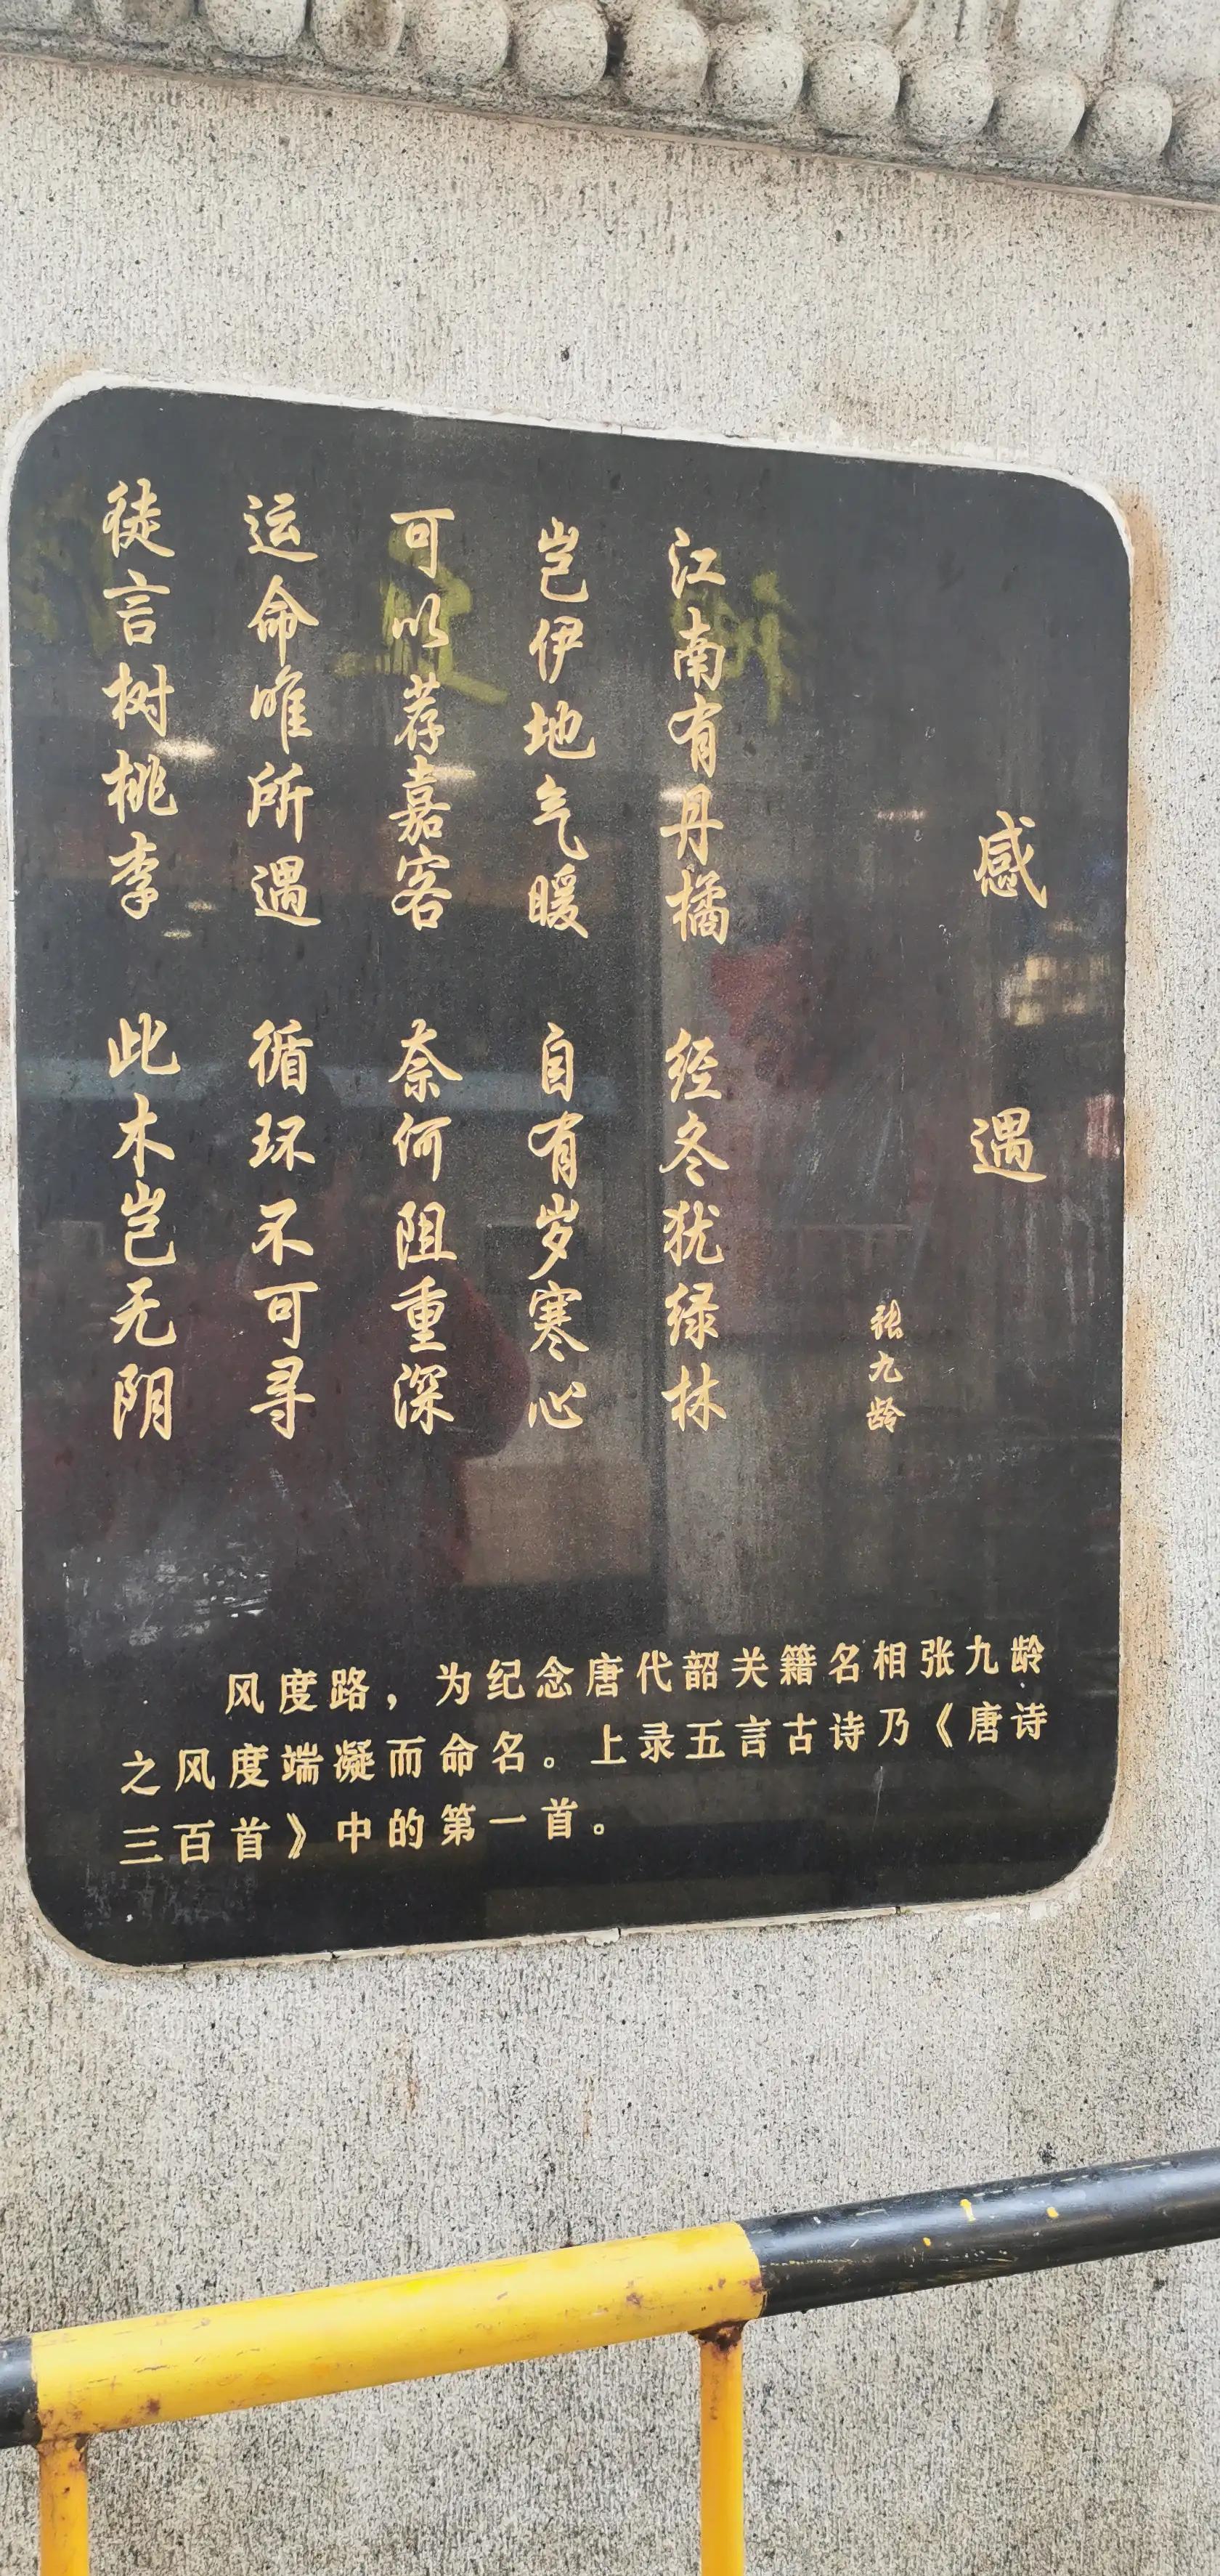 感遇
张九龄
江南有丹橘 经冬犹绿林
岂伊地气暖 自有岁寒心
可以荐嘉客 奈何阻重深
运命唯所遇 循环不可寻
徒言树桃李 此木岂无阴
风度路，为纪念唐代韶关籍名相张九龄
之风度端凝而命名。上录五言古诗乃《唐诗
三百首》中的第一首。